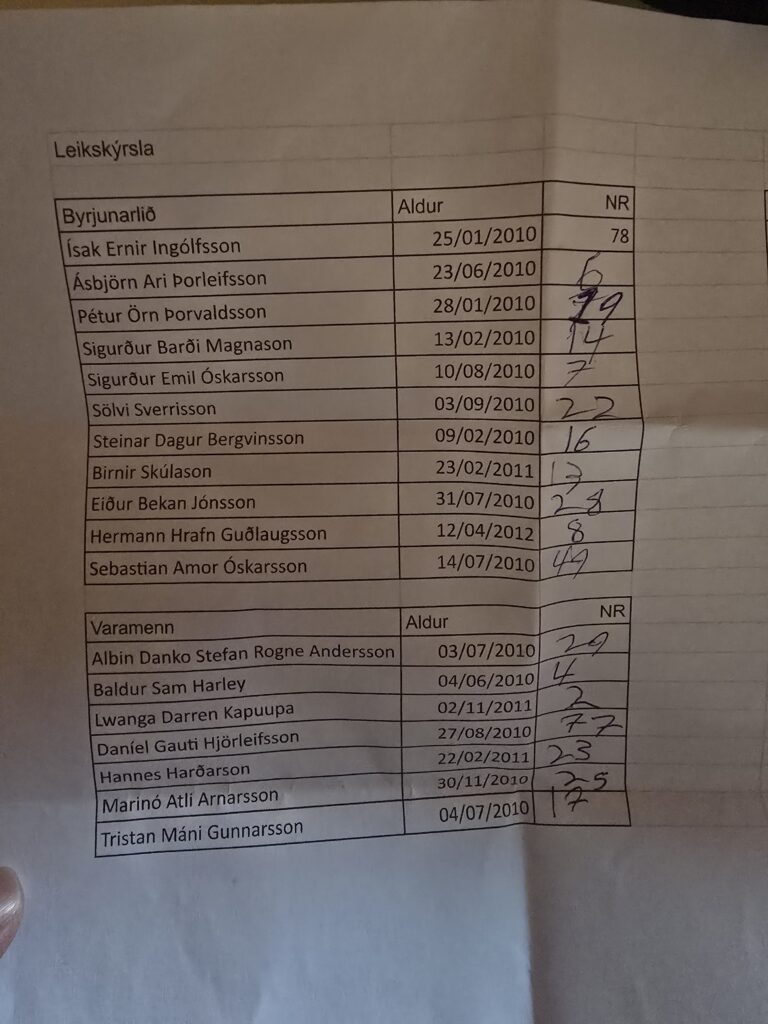 Leikskýrsla
Byrjunarlið Aldur NR
Ísak Ernir Ingólfsson 25/01/2010 78
Ásbjörn Ari Þorleifsson 23/06/2010
Pétur Örn Þorvaldsson 28/01/2010
Sigurður Barði Magnason 13/02/2010 14
Sigurður Emil Óskarsson 10/08/2010 7
Sölvi Sverrisson 03/09/2010 22
Steinar Dagur Bergvinsson 09/02/2010 16
Birnir Skúlason 23/02/2011 13
Eiður Bekan Jónsson 31/07/2010 28
Hermann Hrafn Guðlaugsson 12/04/2012 8
Sebastian Amor Óskarsson 14/07/2010 49
Varamenn Aldur NR
Albin Danko Stefan Rogne Andersson 03/07/2010 29
Baldur Sam Harley 04/06/2010 4
Lwanga Darren Kapuupa 02/11/2011 2
Daníel Gauti Hjörleifsson 27/08/2010 77
Hannes Harðarson 22/02/2011 23
Marinó Atli Arnarsson 30/11/2010 25
Tristan Máni Gunnarsson 04/07/2010 17